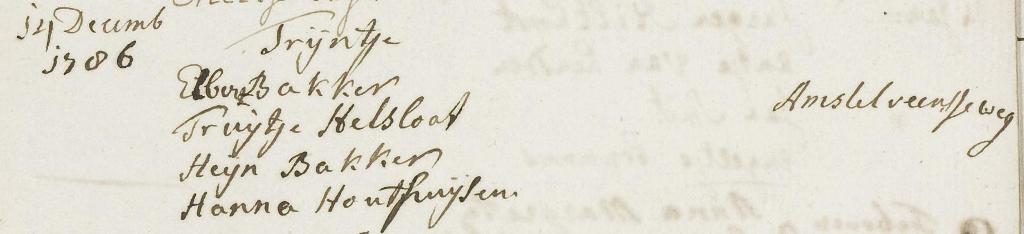 14 Decemb
1786
Trijntje
Elbert Bakker
Truijtje Helsloot
Heijn Bakker
Hanna Houthuijsen.
Amstelveensseweg